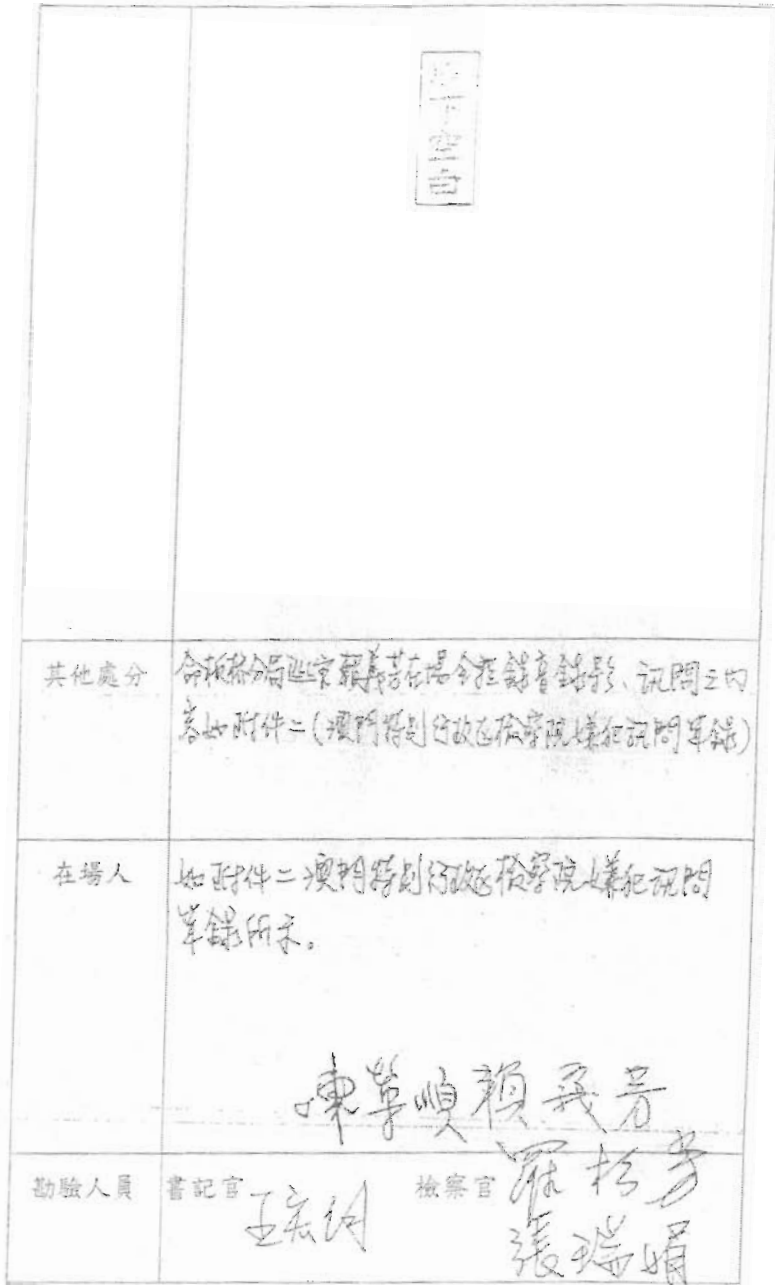 以下空白
其他處分
命板橋分局巡官顏義芳在場全程錄音錄影、訊問之內
容如附件二(澳門特別行政區檢察院嫌犯訊問筆錄)
在場人
如附件二澳門特別行政區檢察院嫌犯訊問
筆錄所示。
勘驗人員 書記官 檢察官
張瑞娟